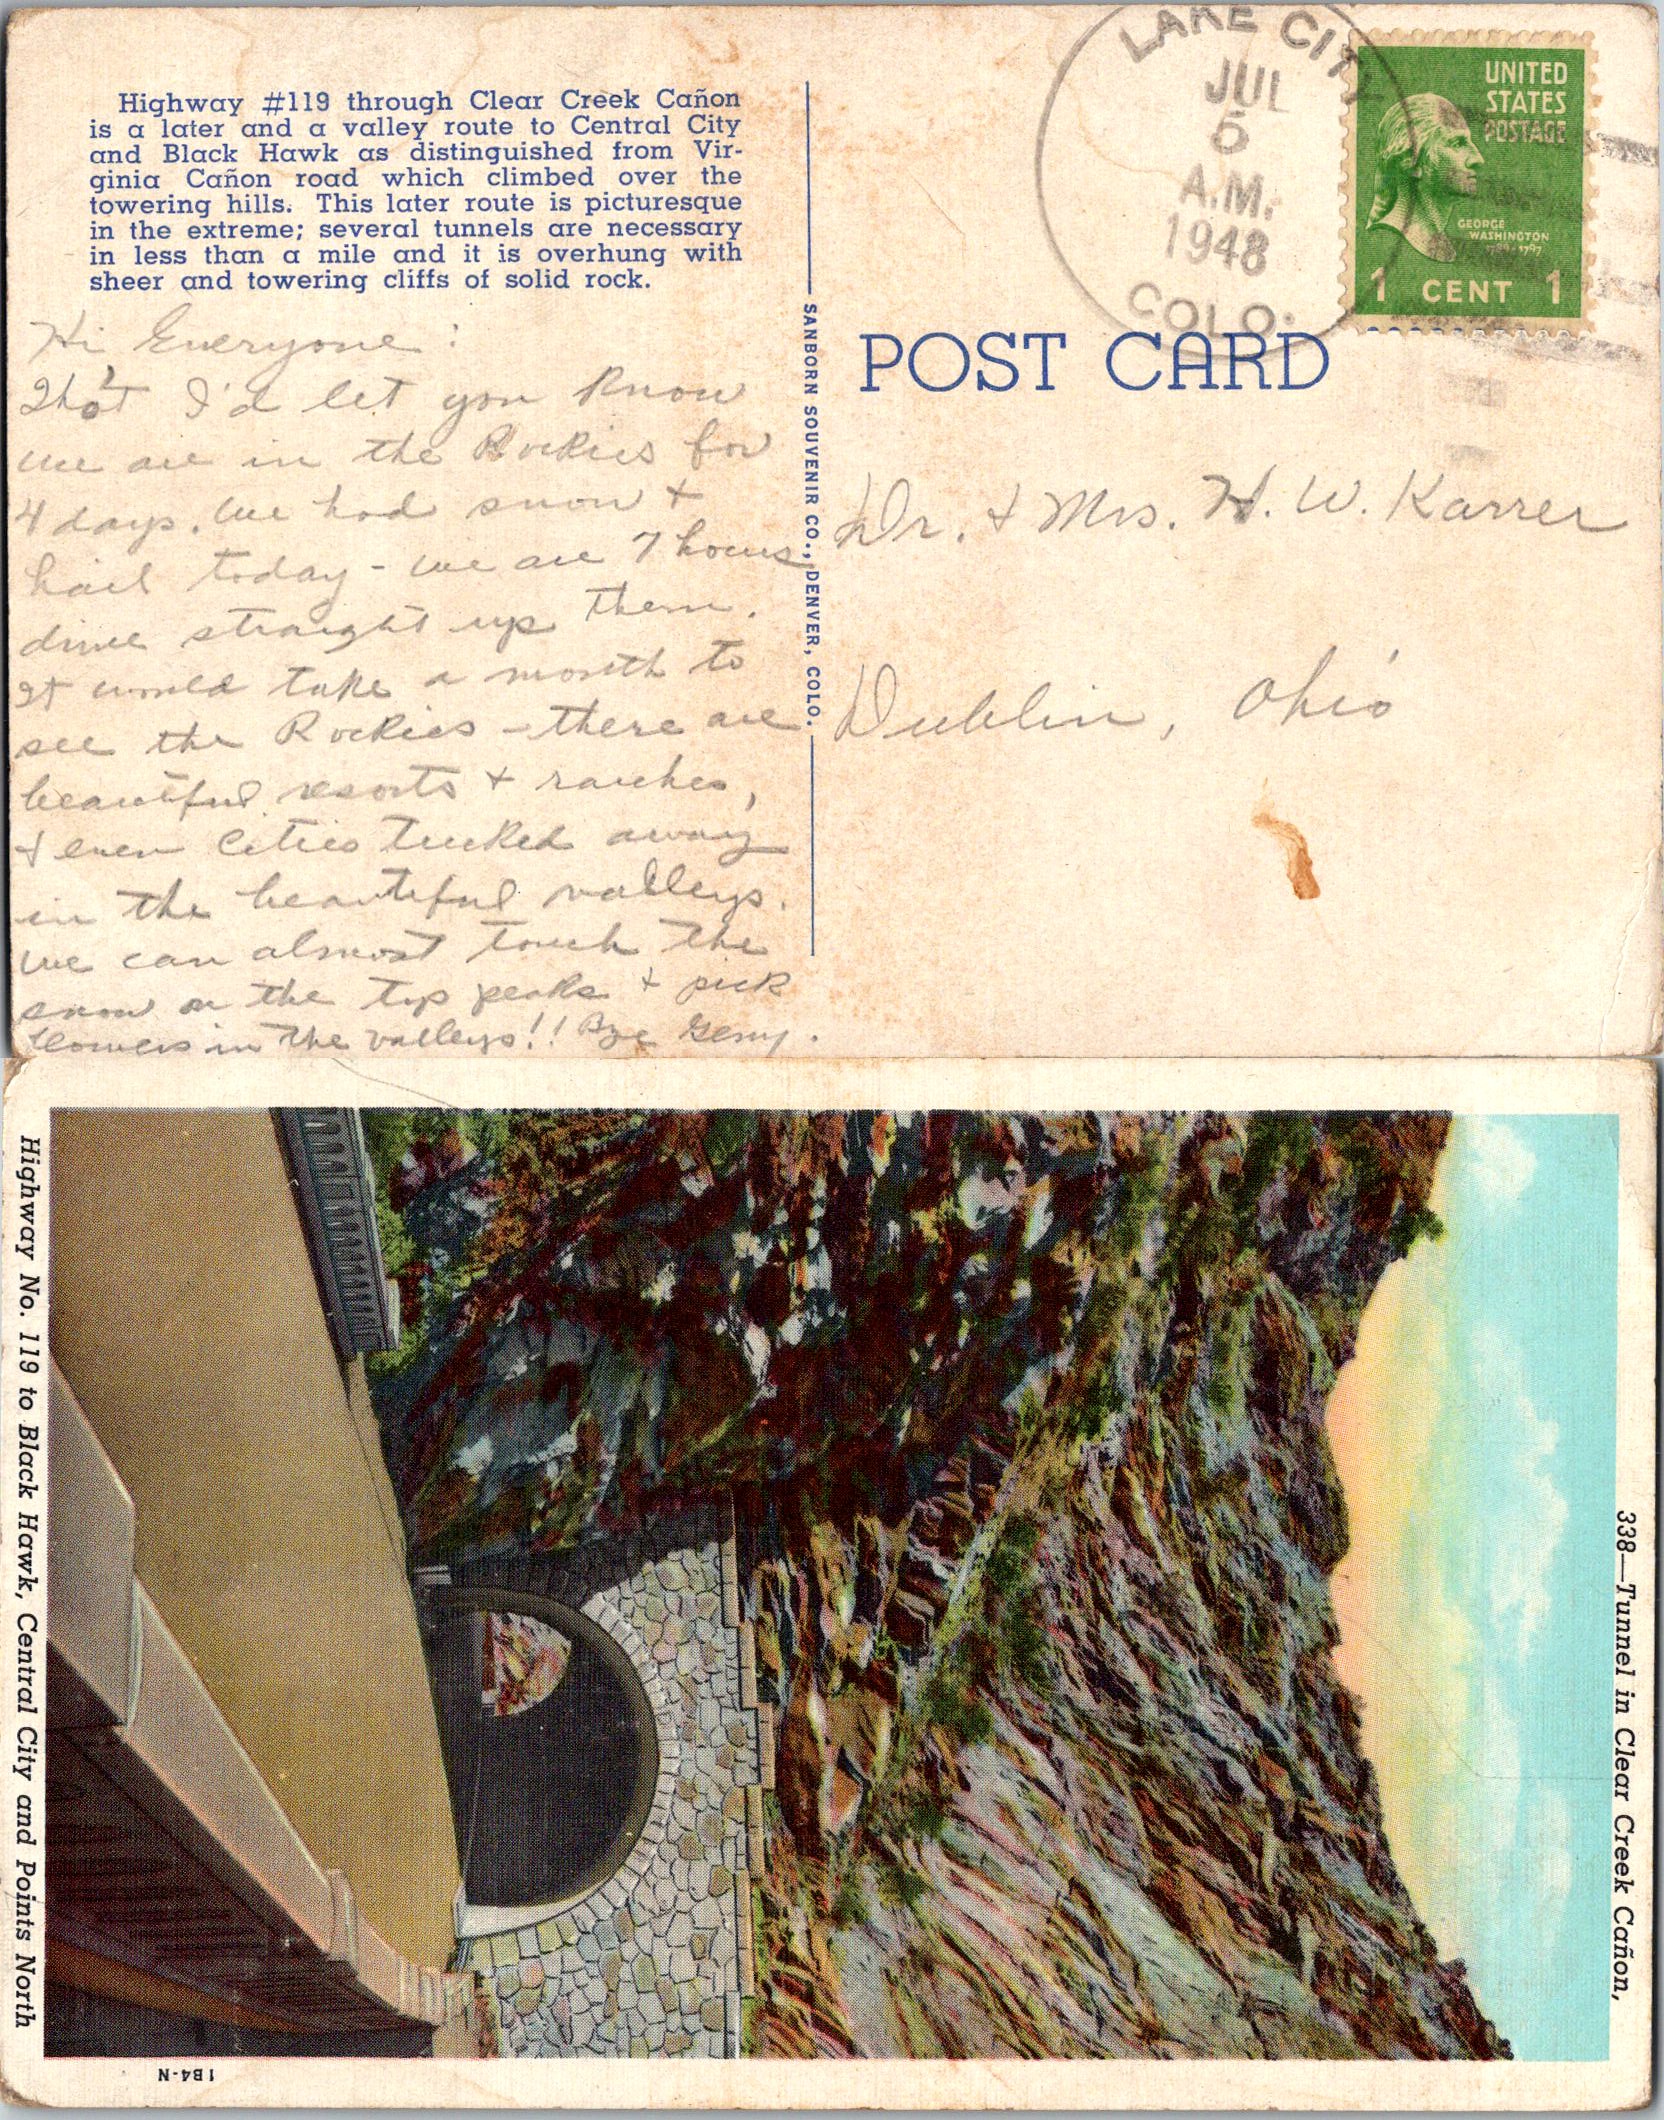 Highway #119 through Clear Creek Cañon
is a later and a valley route to Central City
and Black Hawk as distinguished from Vir-
ginia Cañon road which climbed over the
towering hills. This later route is picturesque
in the extreme; several tunnels are necessary
in less than a mile and it is overhung with
sheer and towering cliffs of solid rock.
Hi Everyone:
Tho't I'd let you know
we are in the Rockies for
4 days. We had snow +
hail today - we are 7 hours
drive straight up them.
It would take a month to
see the Rockies - there are
beautiful resorts + ranches,
+ even cities tucked away
in the beautiful valleys.
We can almost touch the
snow on the top peaks + pick
flowers in the valleys!! Bye Gerry.
SANBORN SOUVENIR CO., DENVER, COLO.
LAKE CITY
JUL
5
A.M.
1948
COLO.
UNITED
STATES
POSTAGE
GEORGE
WASHINGTON
1797
1 CENT 1
POST CARD
Dr. + Mrs. H. W. Karrer
Dublin, Ohio
338—Tunnel in Clear Creek Cañon,
Highway No. 119 to Black Hawk, Central City and Points North
1B4-N